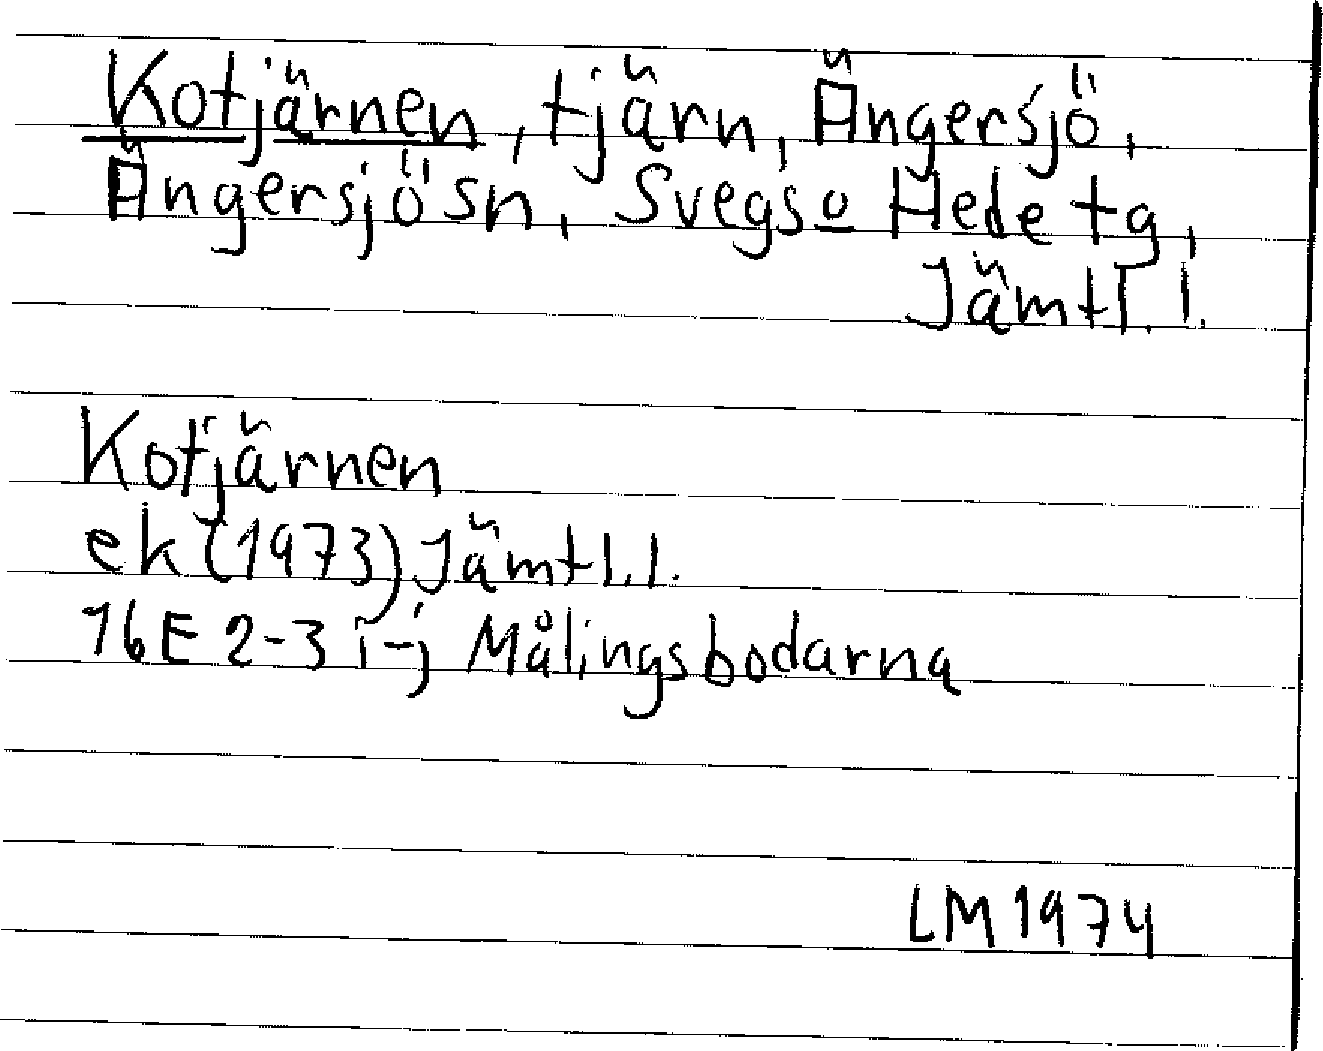 Kotjärnen, tjärn, Ängersjö,
Ängersjö sn, Svegs o Hede tg,
Jämtl. l.
Kotjärnen
ek (1973) Jämtl. l.
16E 2-3 i-j Målingsbodarna
LM 1974